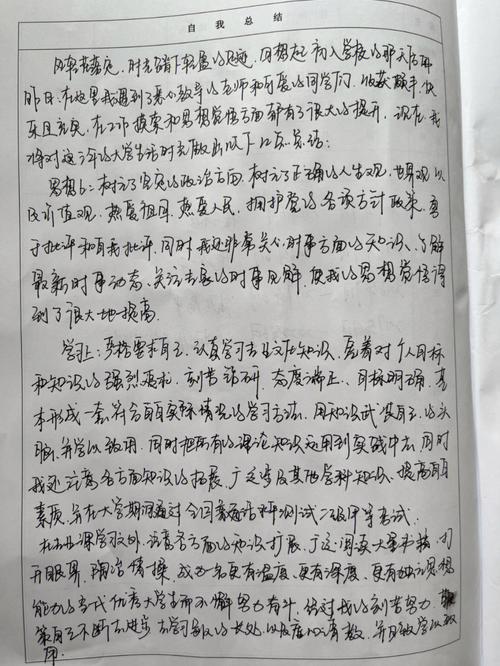 自我总结
风轻花落定，时光踏下轻盈的足迹，回想起初入学校的那天仿佛
昨日，在这里我遇到了悉心教导的老师和可爱的同学们，收获颇丰，快
乐且充实，在工作 和思想觉悟方面都有了很大的提升，现在，我
将对这三年的大学生活时光做出以下几点总结：
思想上：树立了坚定的政治方面，树立了正确的人生观，世界观以
及价值观，热爱祖国，热爱人民，拥护党的各项方针政策，勇
于批评和自我批评，同时我还非常关心时事方面的知识，了解
最新时事动态，关注 的时事见解，使我的思想觉悟得
到了很大地提高。
学习上：严格要求自己，认真学习专业文化知识，凭着对个人目标
和知识的强烈追求，刻苦钻研，态度端正，目标明确，基
本形成一套符合自身实际情况的学习方法，用知识武装自己的头
脑，并学以致用，同时把所有的理论知识运用到实践中去，同时
我还注意各方面知识的拓展，广泛涉及其他学科知识，提高自身
素质，并在大学期间通过全国普通话水平测试二级甲等考试。
在 课学习外，注意各方面的知识扩展，广泛阅读大量书籍，打
开眼界，陶冶情操，成为一名更有温度、更有深度、更有 思想
能力的当代优秀大学生而不懈努力奋斗，经过我的刻苦努力，
自己不断去进步，去学习 的长处，以及 ，并且